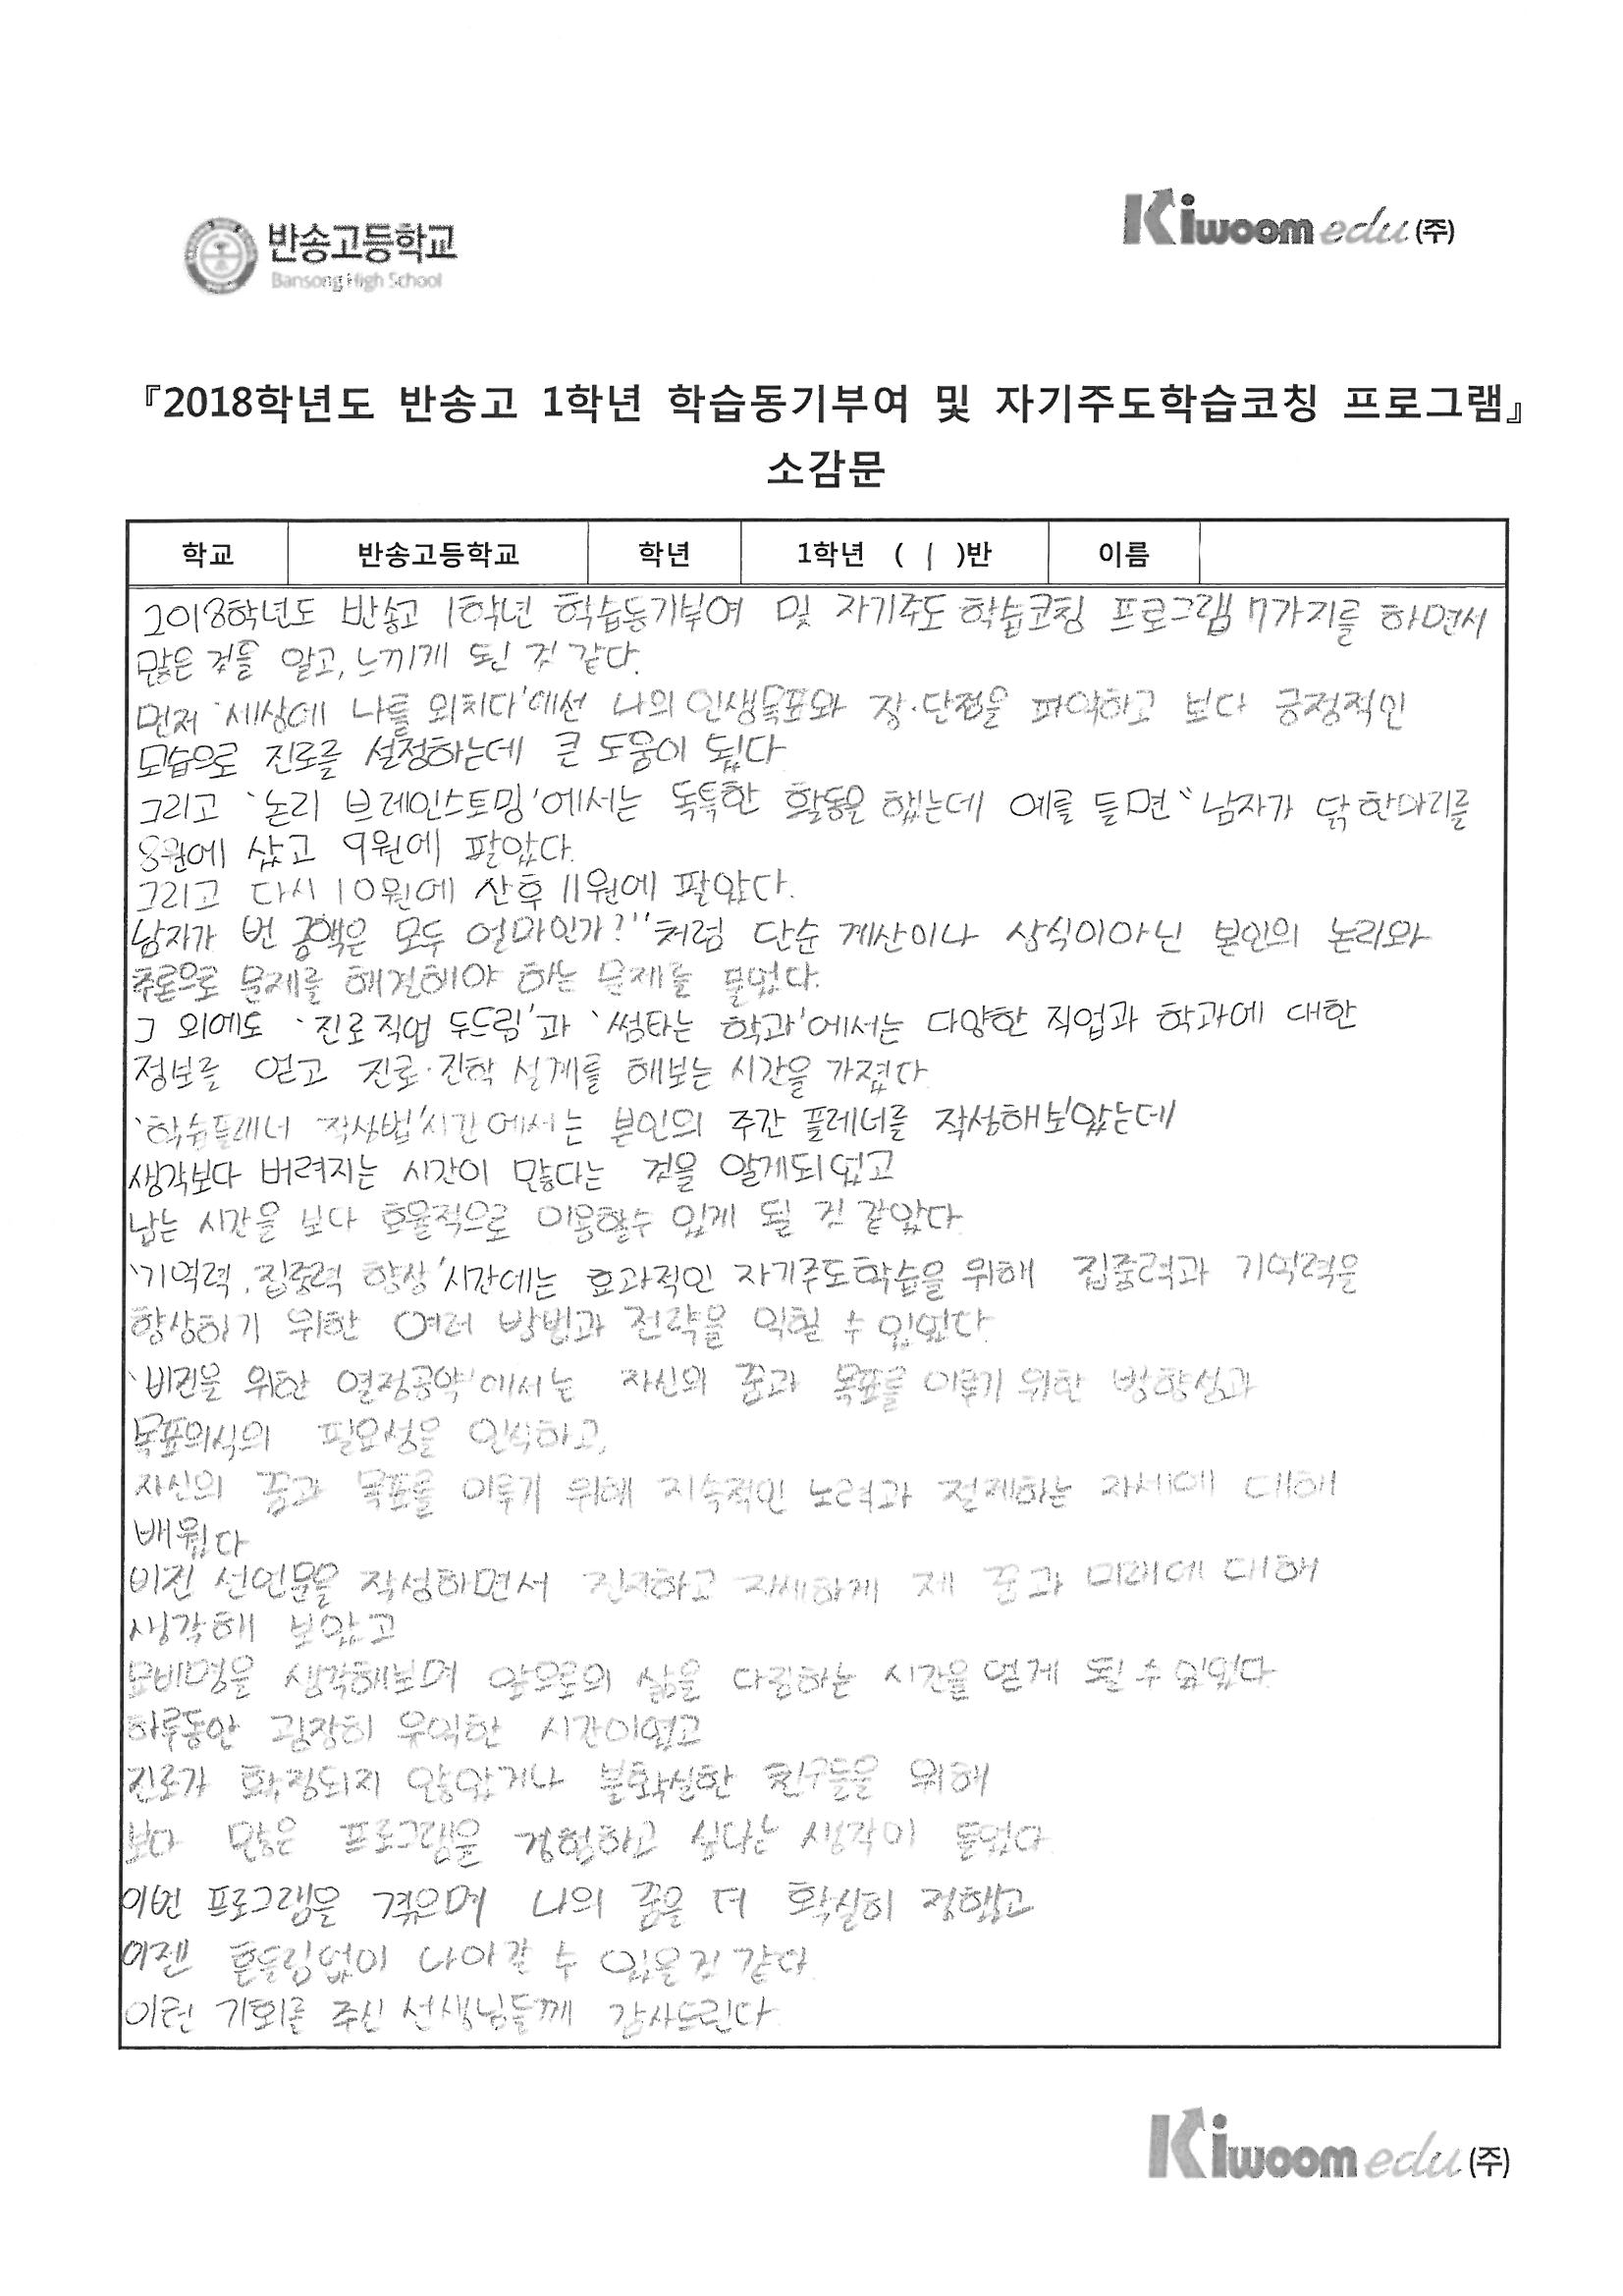 반송고등학교
Bansong High School
Kiwoom edu (주)
『2018학년도 반송고 1학년 학습동기부여 및 자기주도학습코칭 프로그램』
소감문
학교 반송고등학교 학년 1학년 ( 1 )반 이름
2018학년도 반송고 1학년 학습동기부여 및 자기주도 학습코칭 프로그램 7가지를 하면서
많은 것을 알고, 느끼게 된 것 같다.
먼저 '세상에 나를 외치다'에선 나의 인생목표와 장·단점을 파악하고 보다 긍정적인
모습으로 진로를 설정하는데 큰 도움이 됬다
그리고 '논리 브레인스토밍'에서는 독특한 활동을 했는데 예를 들면 "남자가 닭 한마리를
8원에 샀고 9원에 팔았다.
그리고 다시 10원에 산후 11원에 팔았다.
남자가 번 금액은 모두 얼마인가?"처럼 단순 계산이나 상식이아닌 본인의 논리와
추론으로 문제를 해결해야 하는 문제를 풀었다.
그 외에도 '진로직업 두드림'과 '썸타는 학과'에서는 다양한 직업과 학과에 대한
정보를 얻고 진로·진학 설계를 해보는 시간을 가졌다.
'학습플래너 작성법'시간에서는 본인의 주간 플레너를 작성해보았는데
생각보다 버려지는 시간이 많다는 것을 알게되었고
남는 시간을 보다 효율적으로 이용할수 있게 될 것 같았다.
'기억력, 집중력 향상'시간에는 효과적인 자기주도학습을 위해 집중력과 기억력을
향상하기 위한 여러 방법과 전략을 익힐 수 있었다.
'비전을 위한 열정공약'에서는 자신의 꿈과 목표를 이루기 위한 방향성과
목표의식의 필요성을 인식하고,
자신의 꿈과 목표를 이루기 위해 지속적인 노력과 절제하는 자세에 대해
배웠다
비전 선언문을 작성하면서 진지하고 자세하게 제 꿈과 미래에 대해
생각해 보았고
묘비명을 생각해보며 앞으로의 삶을 다짐하는 시간을 얻게 될 수 있었다.
하루동안 굉장히 유익한 시간이였고
진로가 확정되지 않았거나 불확실한 친구들을 위해
보다 많은 프로그램을 경험하고 싶다는 생각이 들었다.
이번 프로그램을 겪으며 나의 꿈을 더 확실히 정했고
이젠 흔들림없이 나아갈 수 있을것 같다.
이런 기회를 주신 선생님들께 감사드린다.
Kiwoom edu (주)